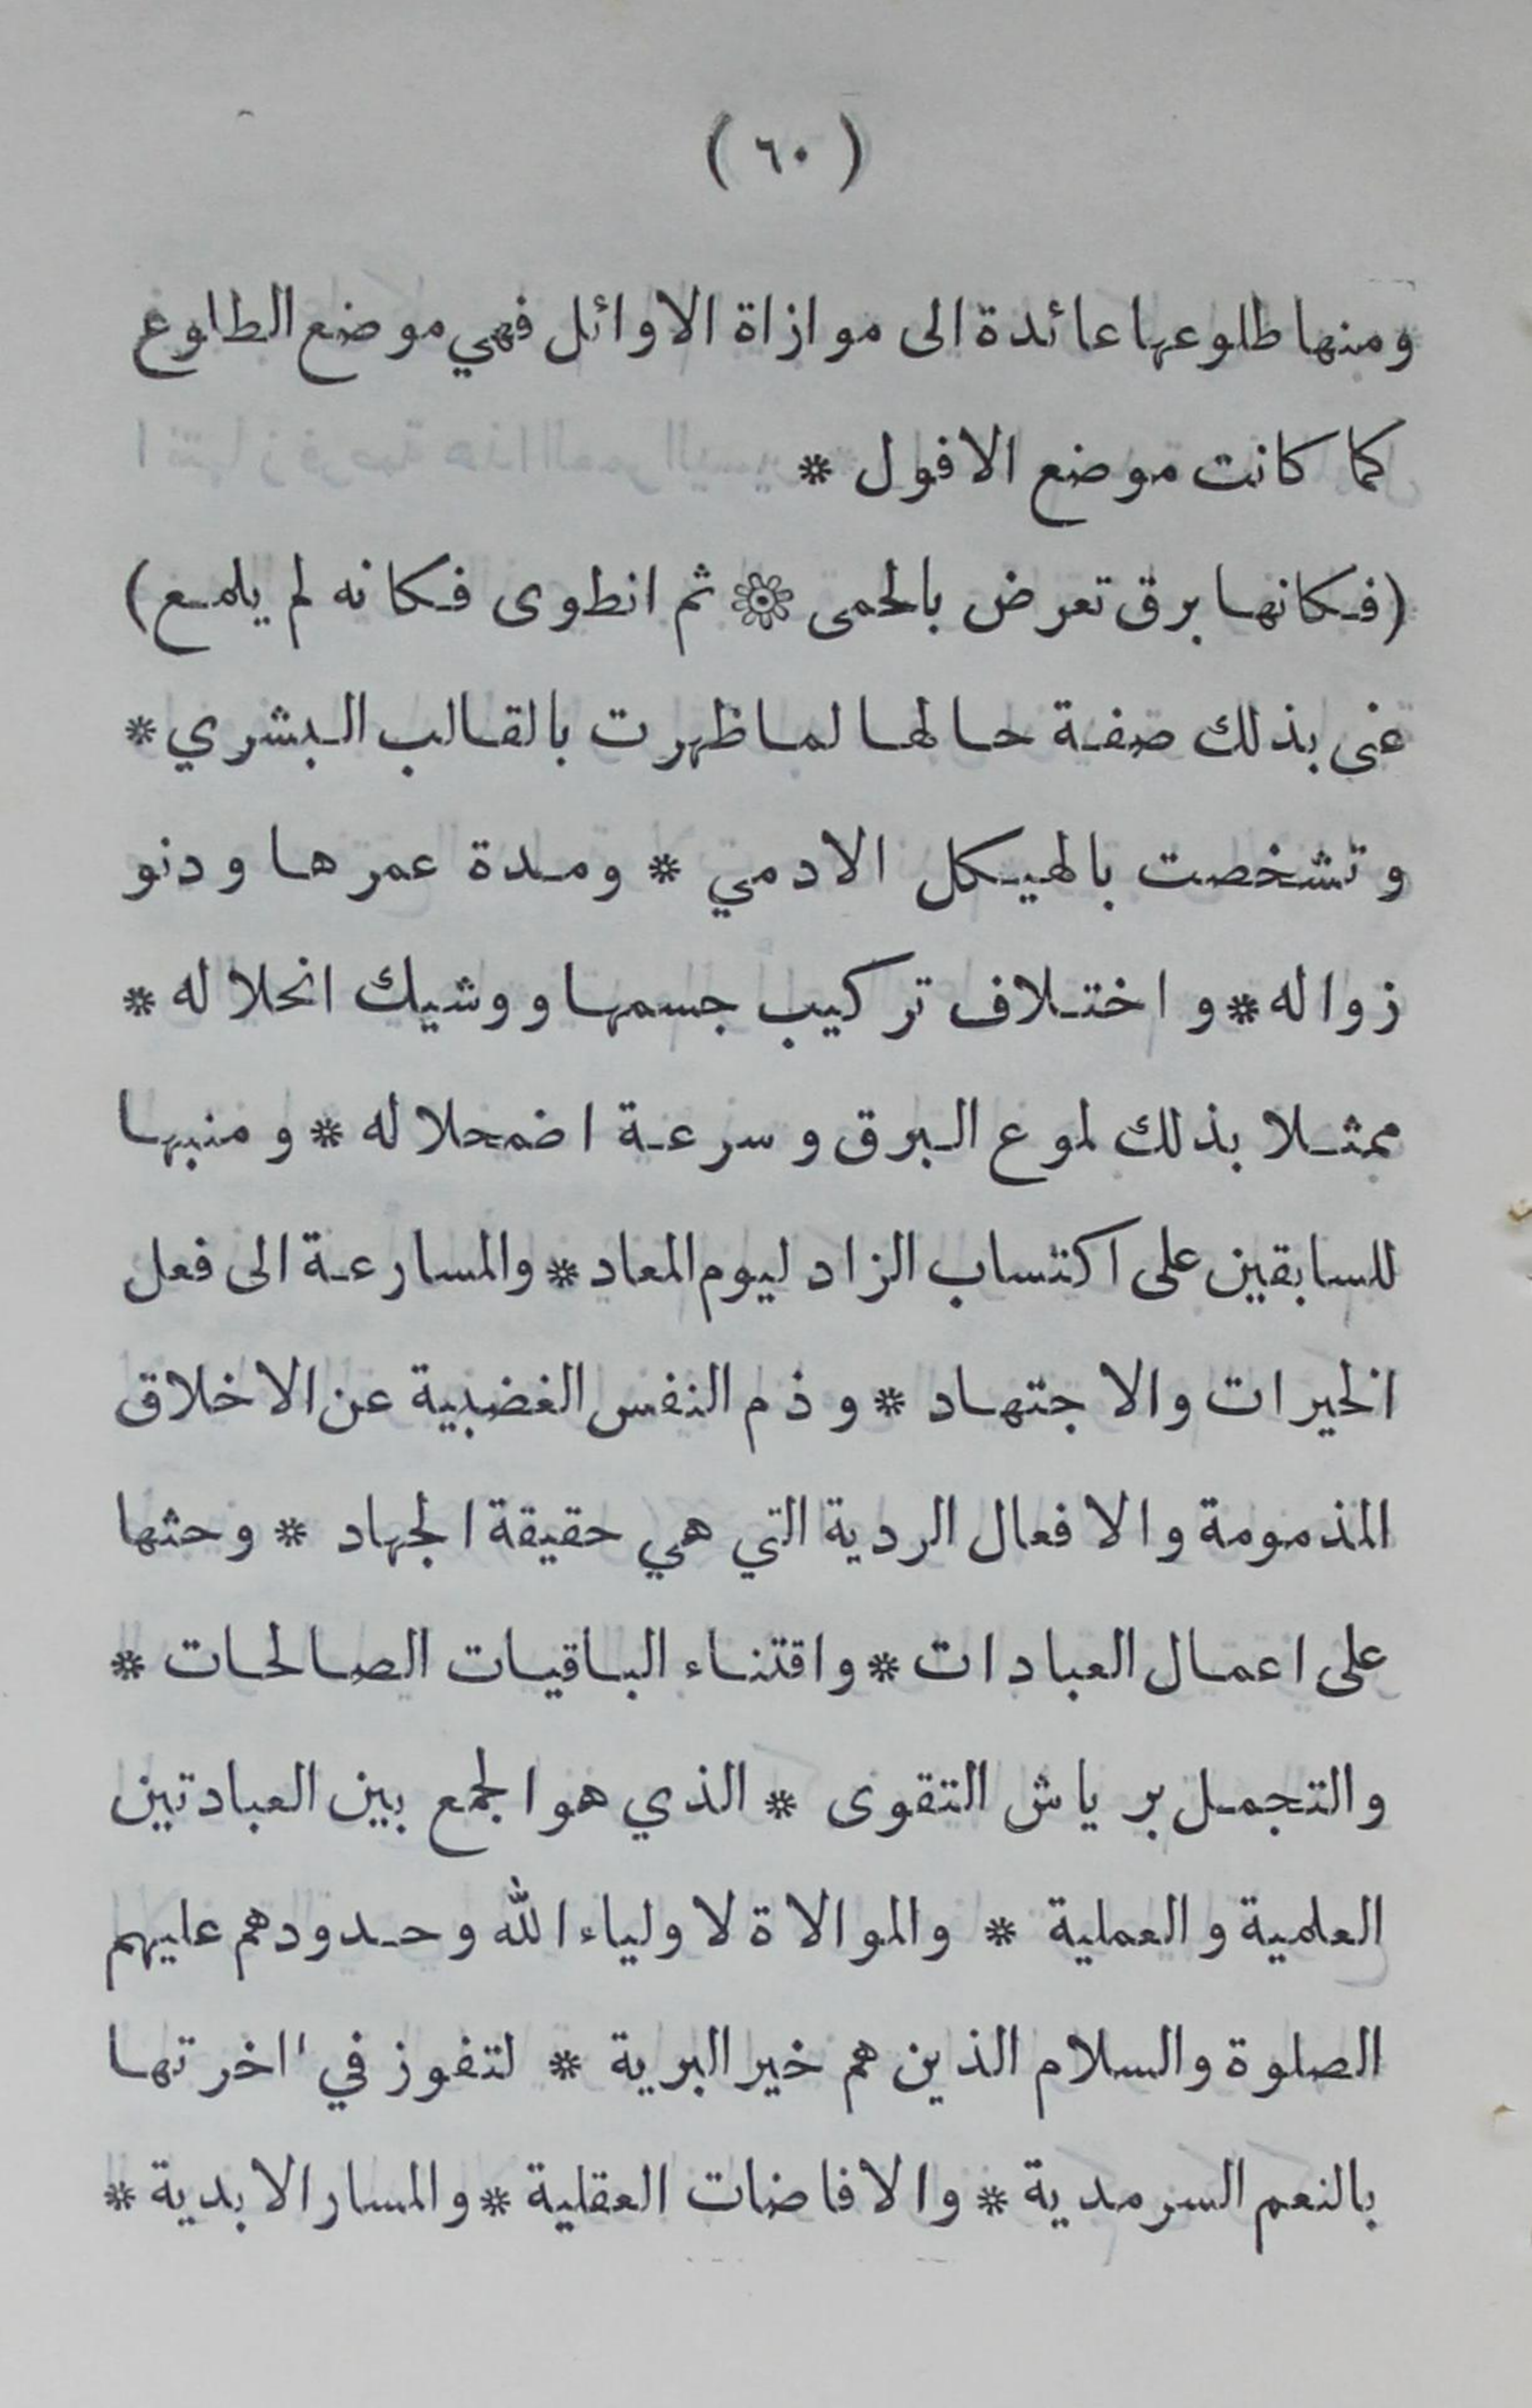 ( ٦٠ )
ومنها طلوعها عائدة الى موازاة الاوائل فهي موضع الطلوع
كما كانت موضع الافول *
(فكانها برق تعرض بالحمى * ثم انطوى فكانه لم يلمع)
عنى بذلك صفة حالها لما ظهرت بالقالب البشري *
وتشخصت بالهيكل الادمي * ومدة عمرها ودنو
زواله * واختلاف تركيب جسمها ووشيك انحلاله *
ممثلا بذلك لموع البرق وسرعة اضمحلاله * ومنبها
للسابقين على اكتساب الزاد ليوم المعاد * والمسارعة الى فعل
الخيرات والاجتهاد * وذم النفس الغضبية عن الاخلاق
المذمومة والافعال الردية التي هي حقيقة الجهاد * وحثها
على اعمال العبادات * واقتناء الباقيات الصالحات *
والتجمل برياش التقوى * الذي هو الجمع بين العبادتين
العلمية والعملية * والموالاة لاولياء الله وحدودهم عليهم
الصلوة والسلام الذين هم خير البرية * لتفوز في ااخرتها
بالنعم السرمدية * والافاضات العقلية * والمسار الابدية *